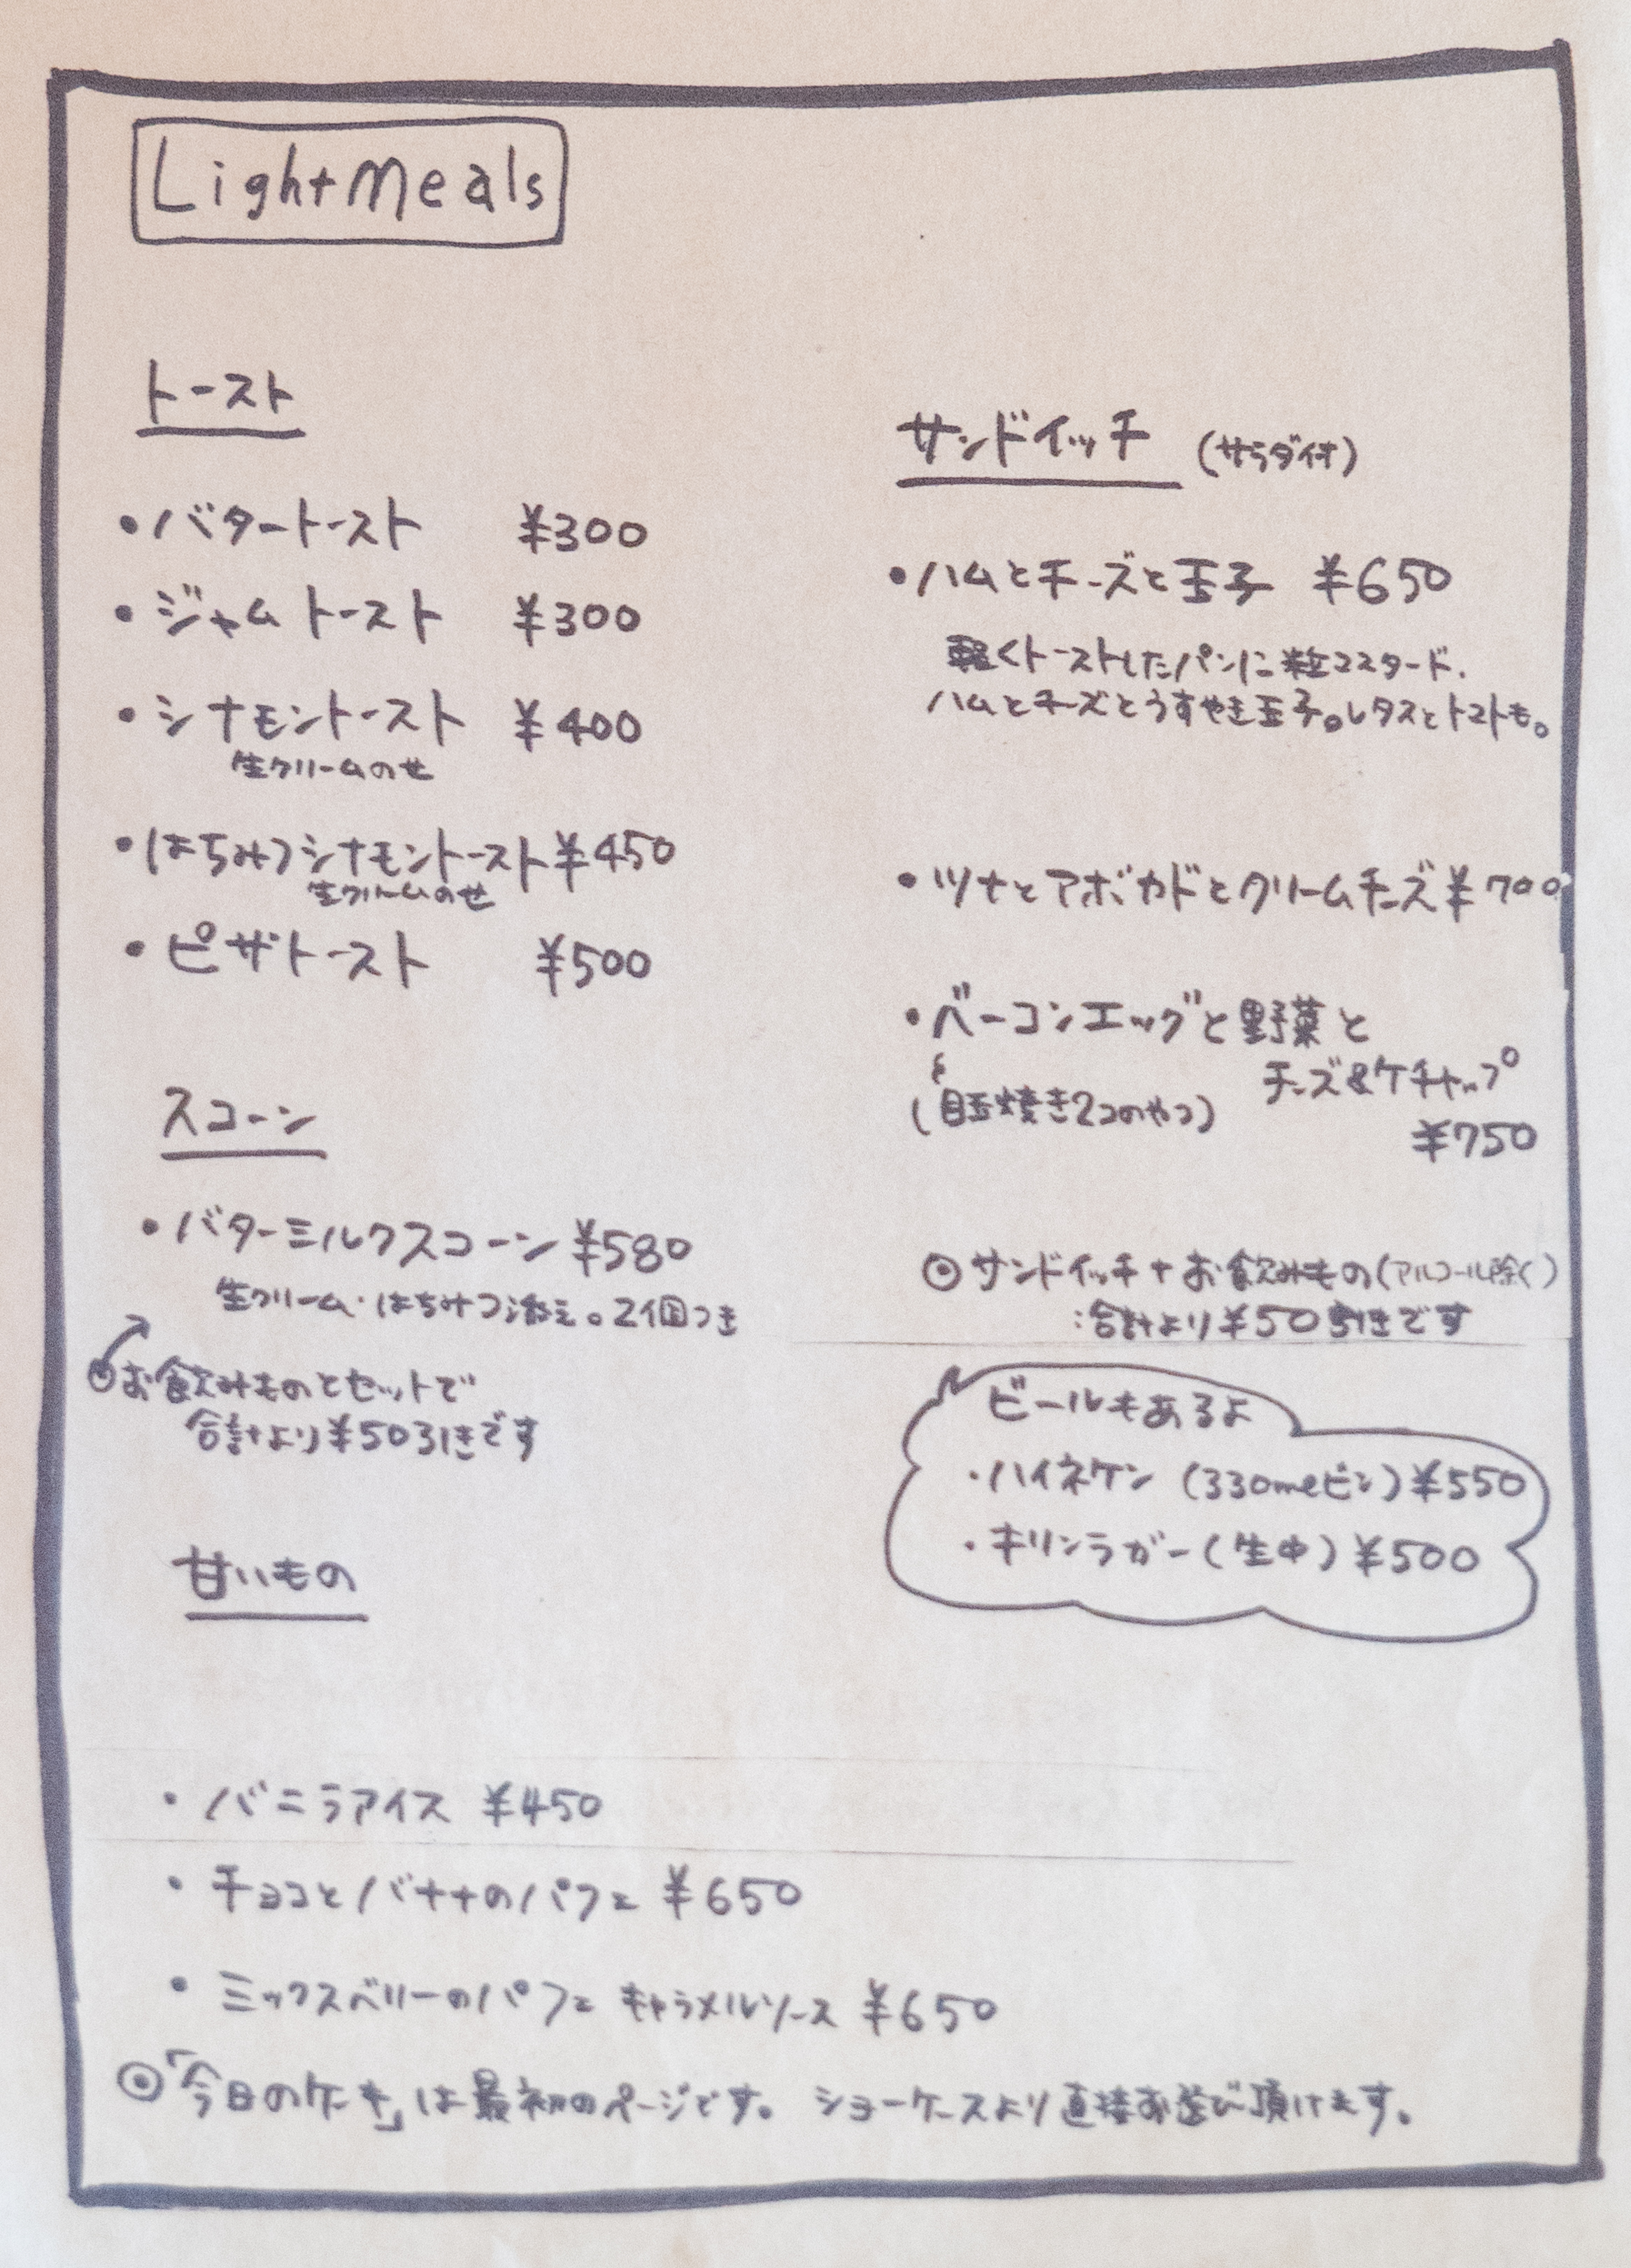 Light Meals
トースト
・バタートースト ¥300
・ジャムトースト ¥300
・シナモントースト ¥400
生クリームのせ
・はちみつシナモントースト ¥450
生クリームのせ
・ピザトースト ¥500
スコーン
・バターミルクスコーン ¥580
生クリーム・はちみつ添え。2個つき
◎お飲みものとセットで
合計より¥50引きです
甘いもの
・バニラアイス ¥450
・チョコとバナナのパフェ ¥650
・ミックスベリーのパフェ キャラメルソース ¥650
◎「今日のケーキ」は最初のページです。 ショーケースより直接お選び頂けます。
サンドイッチ (サラダ付)
・ハムとチーズと玉子 ¥650
軽くトーストしたパンに粒マスタード、
ハムとチーズとうすやき玉子。レタスとトマトも。
・ツナとアボカドとクリームチーズ ¥700
・ベーコンエッグと野菜と
チーズ&ケチャップ
(目玉焼き2コのやつ)
¥750
◎サンドイッチ+お飲みもの(アルコール除く)
:合計より¥50引きです
ビールもあるよ
・ハイネケン (330mlビン) ¥550
・キリンラガー (生中) ¥500